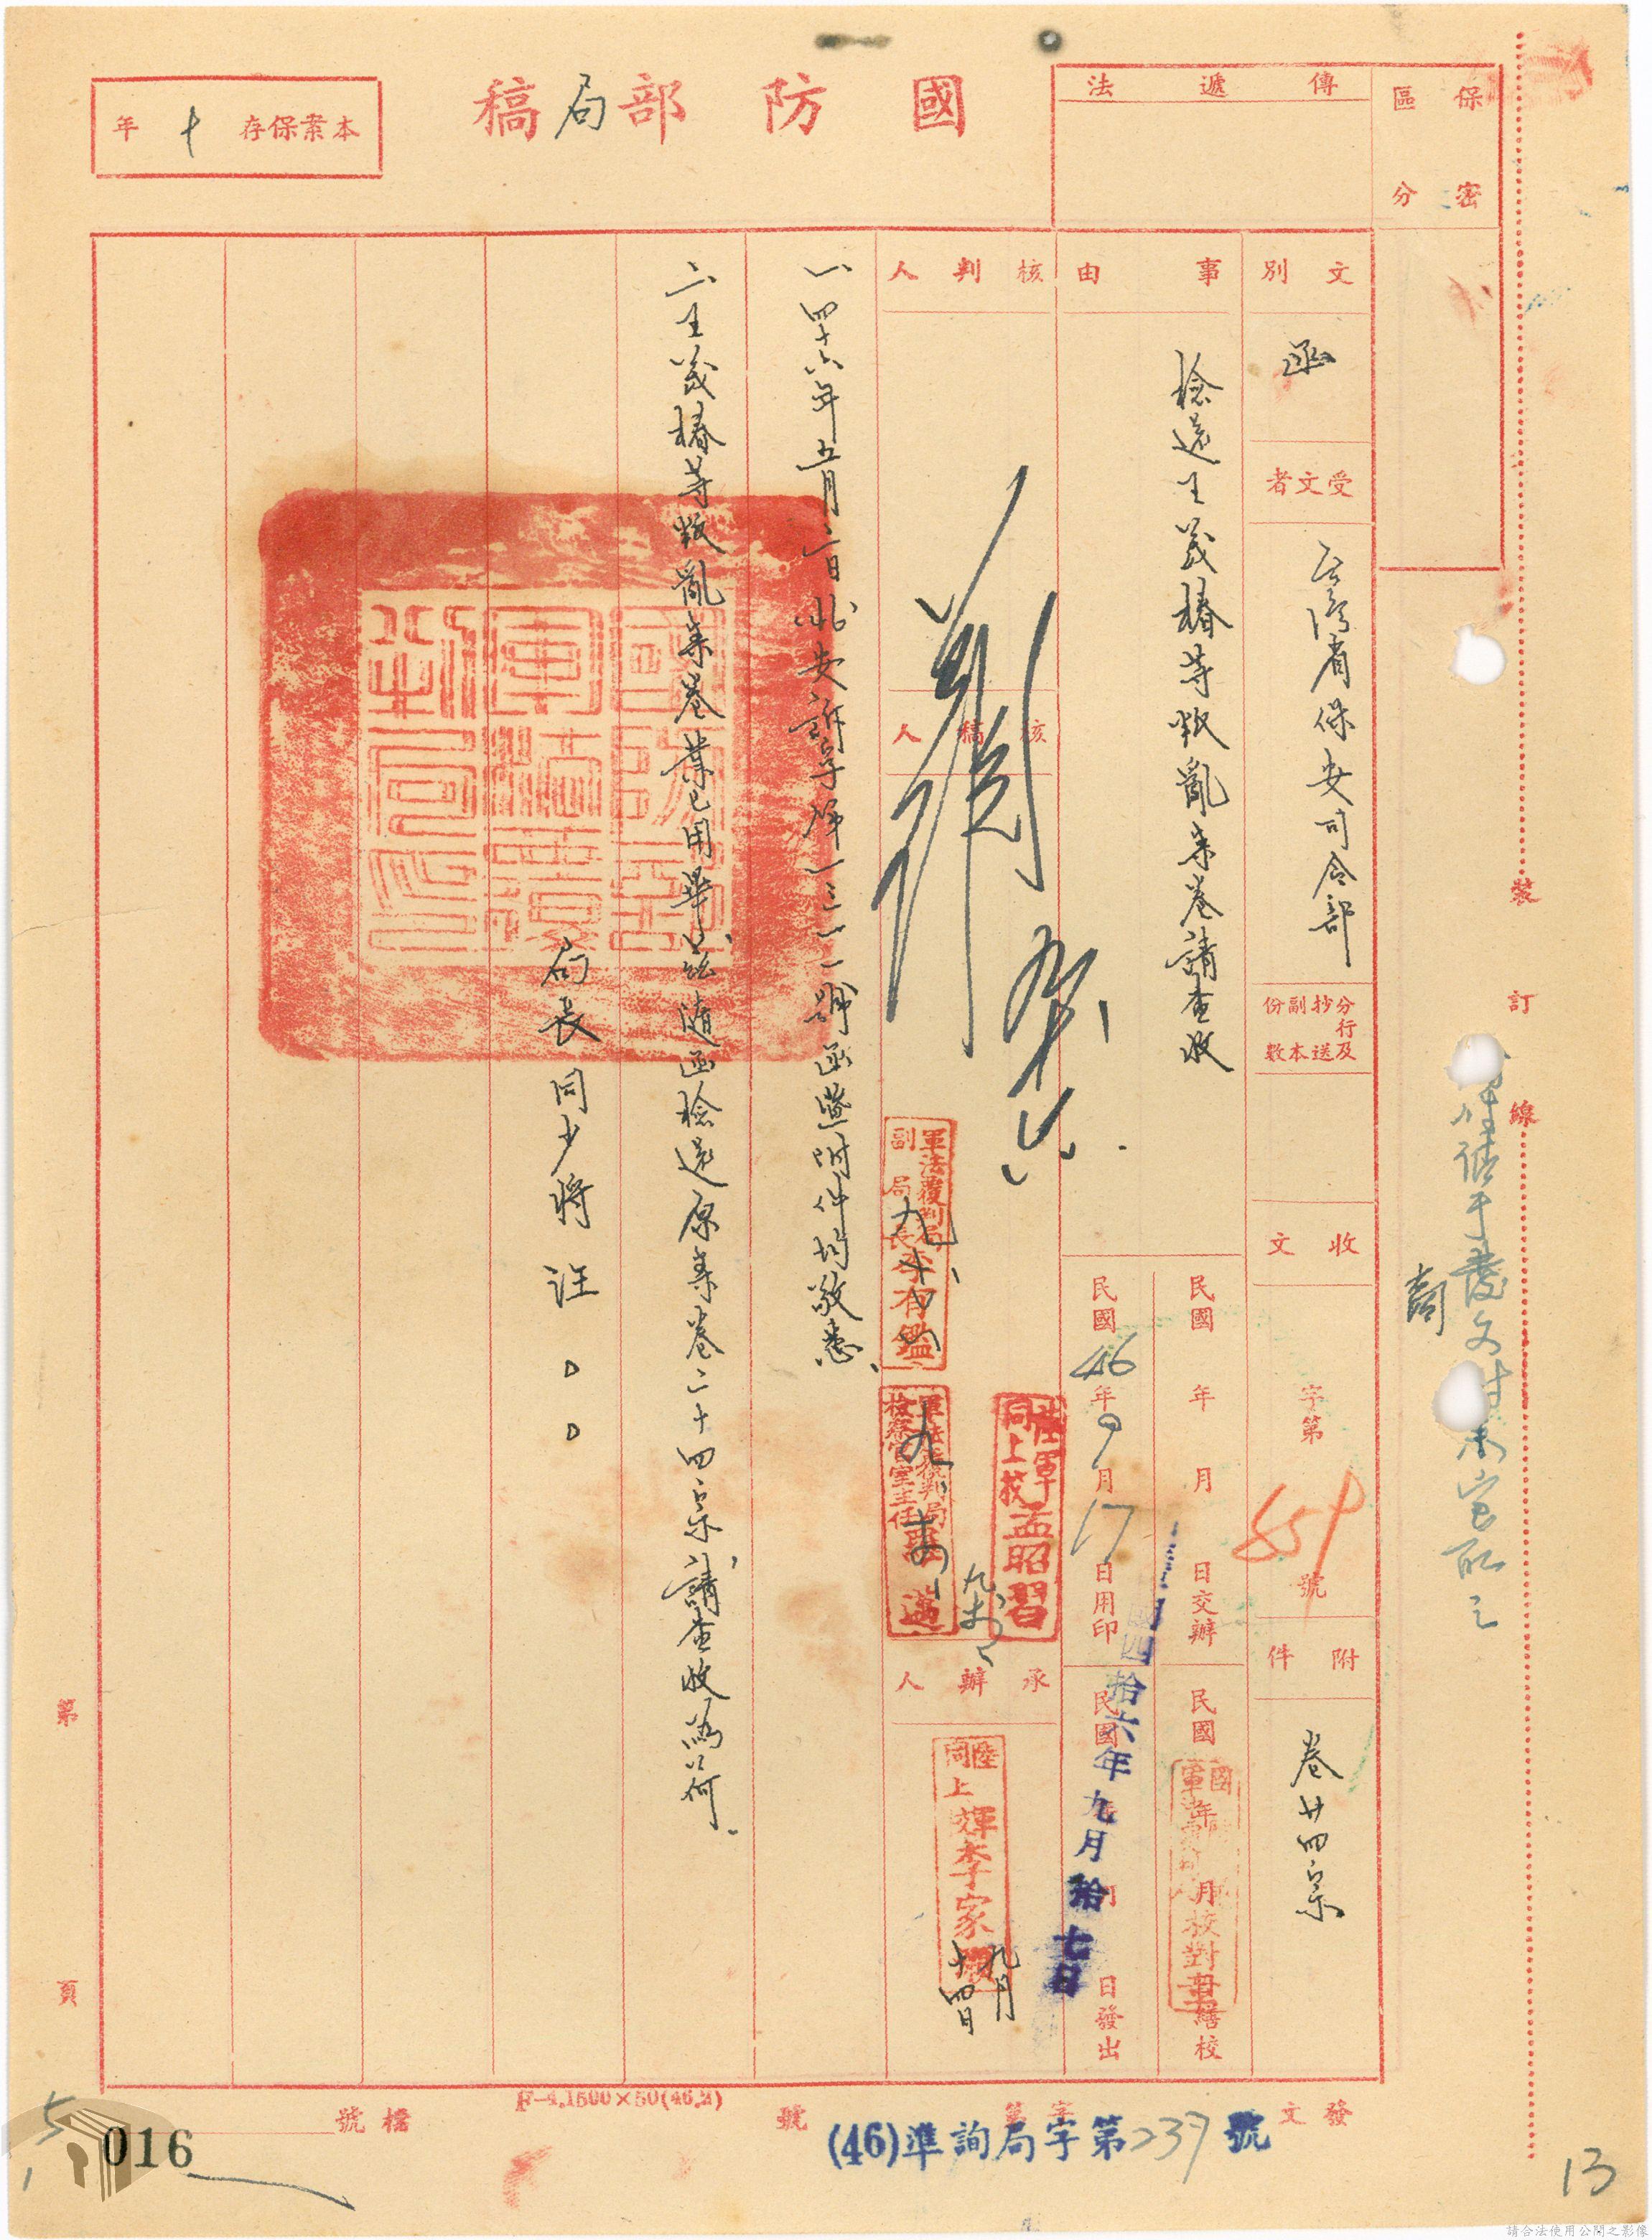 國防部局稿
本案保存十年
保密區分
傳遞法
文別 函
受文者 台灣省保安司令部
分行及抄送副本份數
收文 字第 659 號
附件 卷廿四宗
事由 檢還王義椿等叛亂案卷請查收
民國 年 月 日交辦
民國46年9月17日用印
民國 年 月 日繕校
民國 日發出
國四拾六年九月拾七日
校對
核判人
核稿人
軍法覆判局副局長李有鑑
陸軍同上校孟昭習
軍法覆判局檢察官室主任
承辦人
九月十四日
一、四十六年五月二日北安訴字第一三一一號函暨附件均敬悉、
二、王義椿等叛亂案卷業已用畢、茲隨函檢還原案卷二十四宗、請查收為荷.
局長 同少將 汪○○
國防部軍法覆判局印
裝訂線
第 頁
檔號
016
F-4.1500×50(46.2)
發文 字第 號
(46)準詢局字第237號
13
請合法使用公開之影像